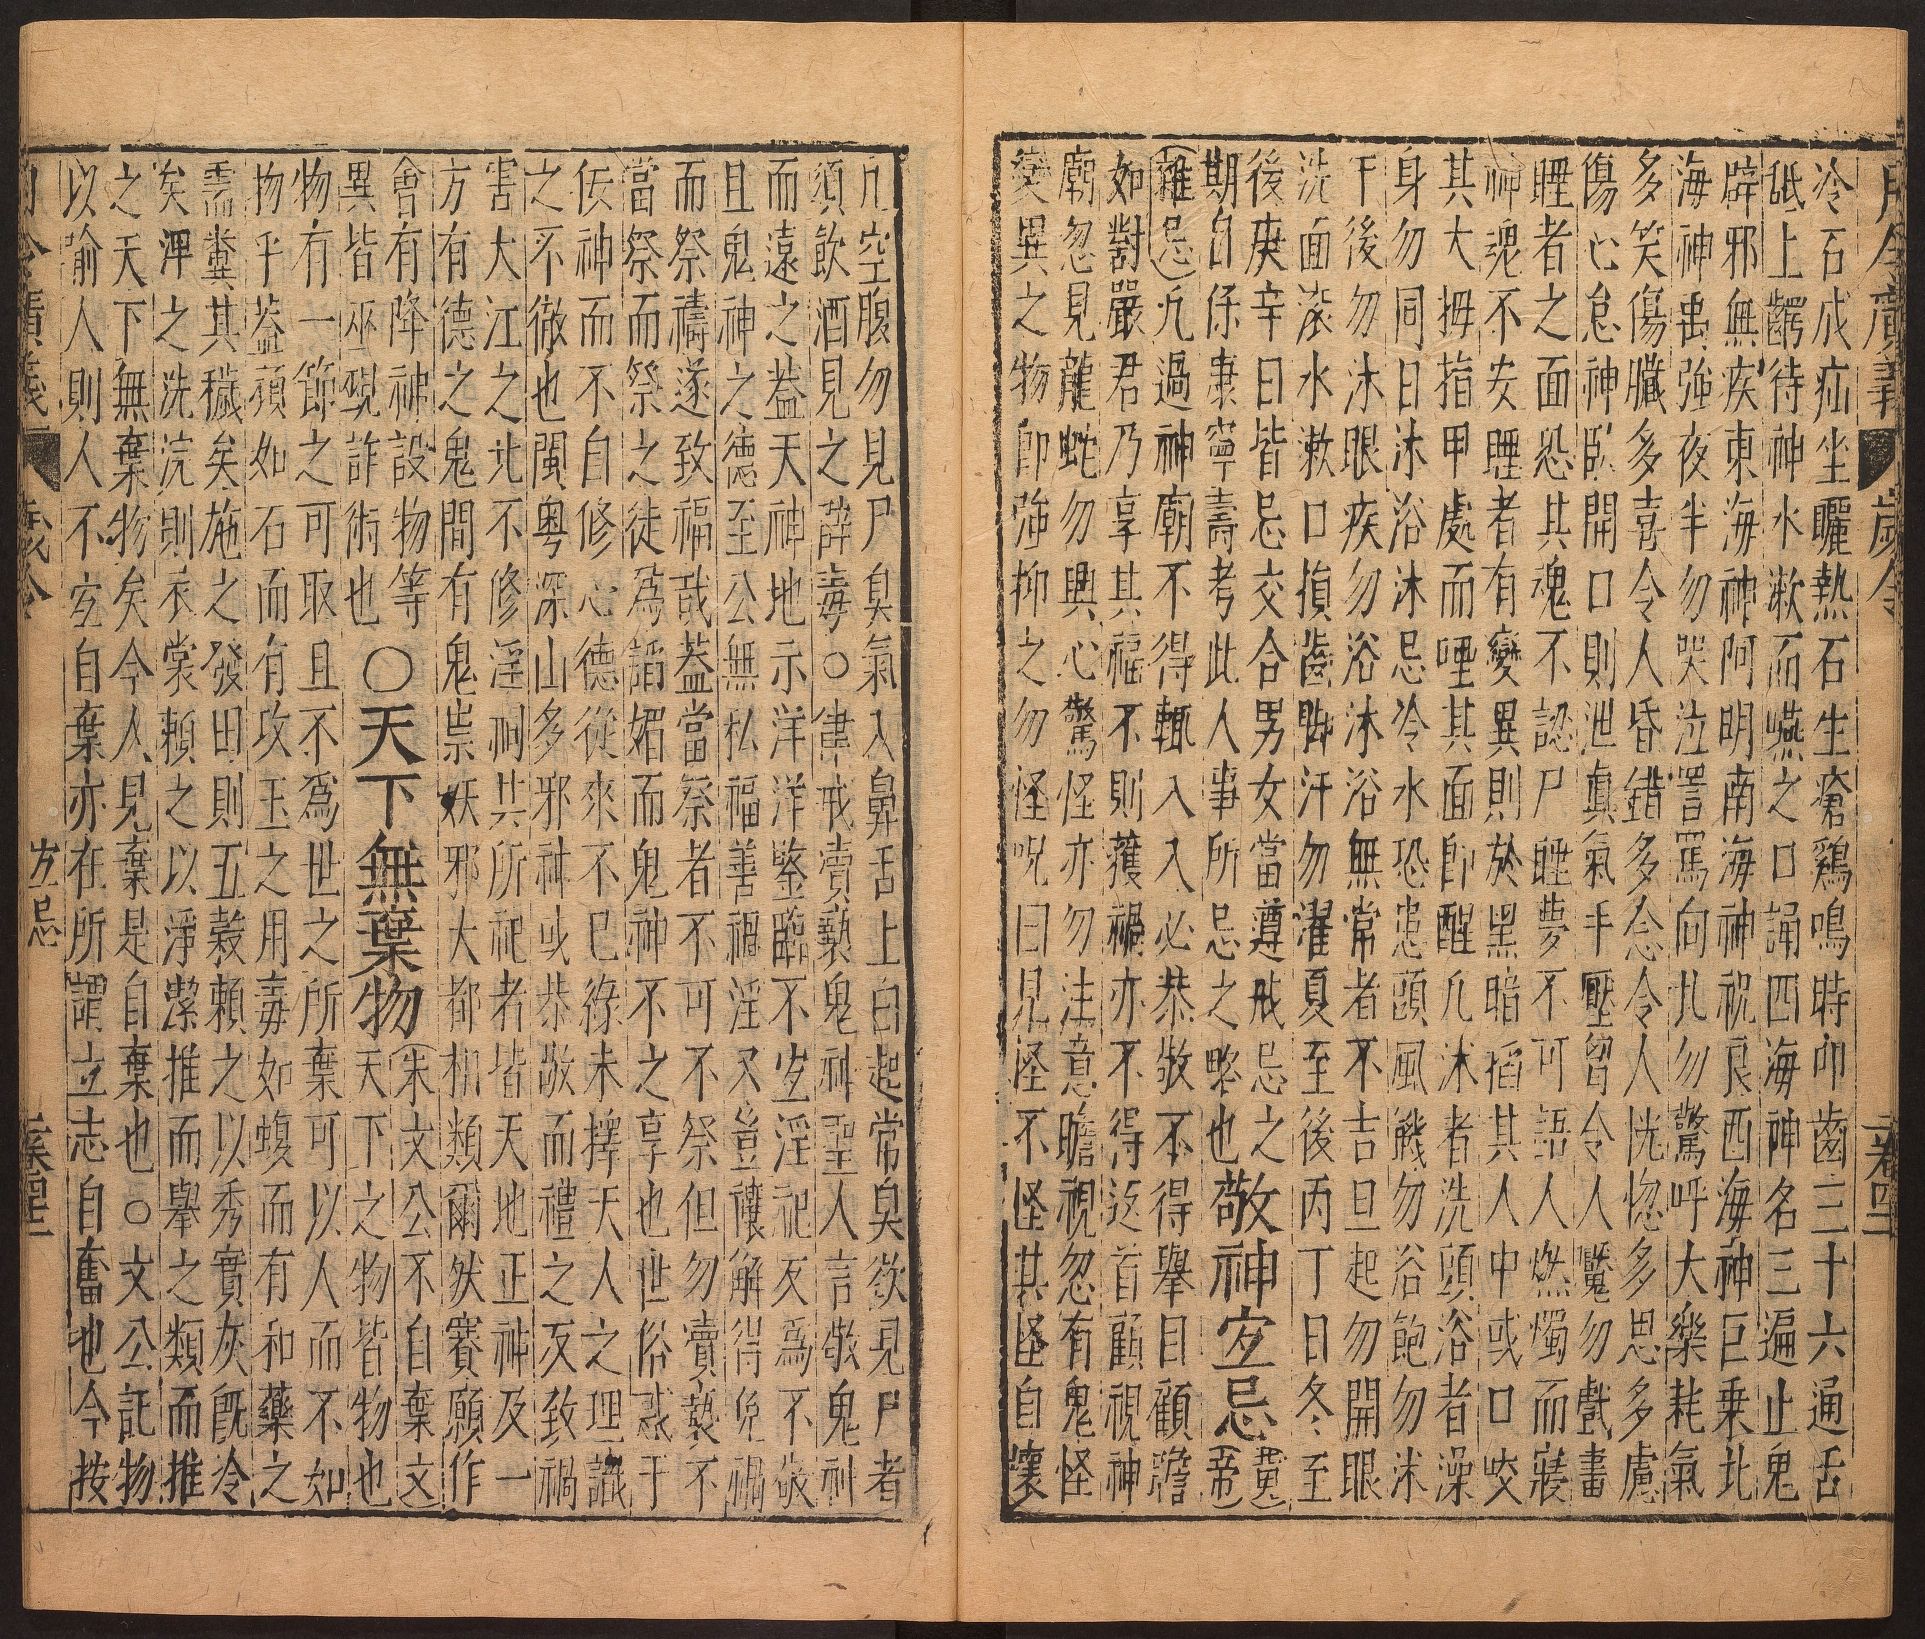 月令廣義 歲令 卷四
冷石成疝坐曬熱石生瘡鷄鳴時叩齒三十六通舌
舐上齶待神水漱而嚥之口誦四海神名三遍止鬼
辟邪無疾東海神阿明南海神祝良西海神巨乗北
海神禺强夜半勿哭泣詈罵向北勿驚呼大樂耗氣
多笑傷臟多喜令人昏錯多念令人恍惚多思多慮
傷心怠神卧開口則泄眞氣手壓留令人魘勿戲畫
睡者之面恐其魂不認尸睡夢不可語人燃燭而寢
神魂不安睡者有變異則於黑暗掐其人中或口咬
其大拇指甲處而唾其面卽醒凡沐者洗頭浴者澡
身勿同日沐浴沐忌冷水恐患頭風饑勿浴飽勿沐
下後勿沐眼疾勿浴沐浴無常者不吉旦起勿開眼
洗面滚水漱口損齒脚汗勿濯夏至後丙丁日冬至
後庚辛日皆忌交合男女當遵戒忌之
期自保康寧壽考此人事所忌之略也敬神宐忌黄帝
雜忌凡過神廟不得輒入入必恭敬不得舉目顧瞻
如對嚴君乃享其福不則獲禍亦不得返首顧視神
廟忽見龍蛇勿興心驚怪亦勿注意瞻視忽有鬼怪
變異之物卽强抑之勿怪呪曰見怪不怪其怪自壞
凡空腹勿見尸臭氣入鼻舌上白起常臭欲見尸者
須飲酒見之辟毒○律戒賣褻鬼神聖人言敬鬼神
而遠之葢天神地示洋洋鑒臨不宐淫祀反爲不敬
且鬼神之德至公無私福善禍淫又豈禳解得免禍
而祭禱遂致福哉葢當祭者不可不祭但勿賣褻不
當祭而祭之徒爲謟媚而鬼神不之享也世俗求于
佞神而不自修心德從來不巳緣未擇天人之理識
之不徹也閩粤深山多邪神或恭敬而禮之反致禍
害大江之北不修淫祠其所祀者皆天地正神及一
方有德之鬼間有鬼祟妖邪大都相類爾然賽願作
會有降神設物等
異皆巫覡詐術也 ○天下無棄物朱文公不自棄文天下之物皆物也
物有一節之可取且不爲世之所棄可以人而不如
物乎葢頑如石而有攻玉之用毒如蝮而有和藥之
需糞其穢矣施之發田則五穀賴之以秀實灰旣冷
矣渾之洗浣則衣裳賴之以淨潔推而舉之類而推
之天下無棄物矣今人見棄是自棄也○文公託物
以喻人則人不宐自棄亦在所謂立志自奮也今按
月令廣義 歲令 宐忌